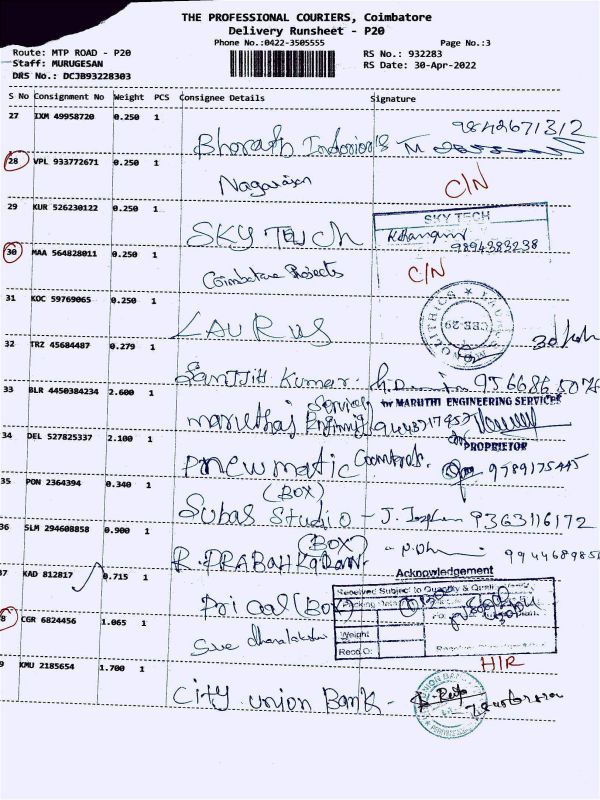 THE PROFESSIONAL COURIERS, Coimbatore
Delivery Runsheet - P20
Phone No.:0422-3505555
Page No.:3
Route: MTP ROAD - P20
RS No.: 932283
Staff: MURUGESAN
RS Date: 30-Apr-2022
DRS No.: DCJB93228303
S No Consignment No Weight PCS Consignee Details Signature
27 IXM 49958720 0.250 1
9842671312
Bharath
28 VPL 933772671 0.250 1
Nagarajan C/N
29 KUR 526230122 0.250 1
SKY TECH
SKY TECH
9894383238
30 MAA 564828011 0.250 1
Coimbatore Projects C/N
31 KOC 59769065 0.250 1
LAURUS
32 TRZ 45684487 0.279 1
Kumar.
33 BLR 4450384234 2.600 1
Services for MARUTHI ENGINEERING SERVICES
PROPRIETOR
34 DEL 527825337 2.100 1
Pneumatic 9789175445
35 PON 2364394 0.340 1
(BOX)
Subas Studio - J. Joseph 9363116172
36 SLM 294608858 0.900 1
(BOX)
R. PRABAHKARAN
Acknowledgement
37 KAD 812817 0.715 1
Received Subject to Quantity & Quality
Pricol (BOX)
Weight
8 CGR 6824456 1.065 1
Sree dhanalakshmi
Recd.O:
H/R
9 KMU 2185654 1.700 1
City union Bank -